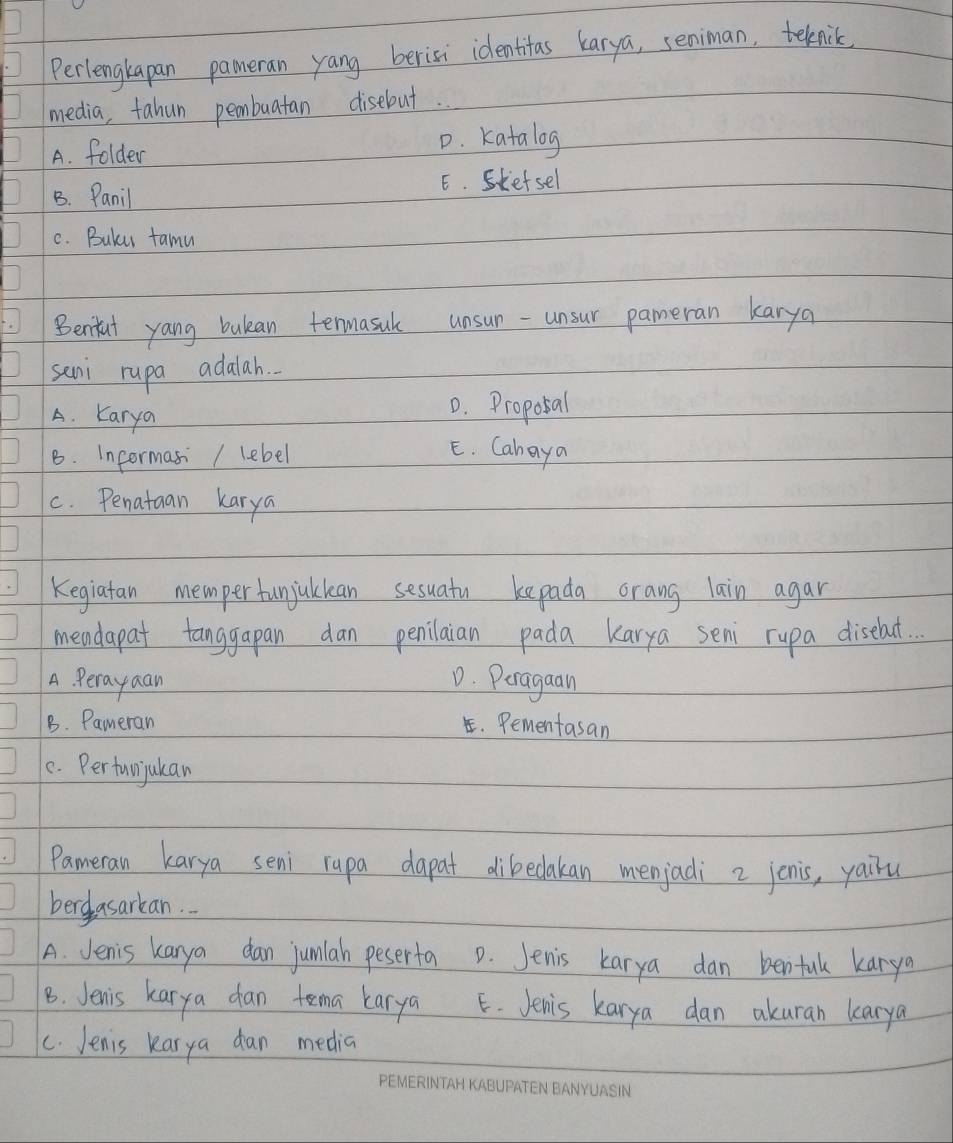 Perlengkapan pameran yang berisi identitas karya, seniman, teknik,
media, tahun pembuatan disebut ..
A. folder
D. Katalog
B. Panil
E. Sketsel
C. Buku tamu
Berikut yang bukan termasuk unsur - unsur pameran karya
seni rupa adalah...
A. Karya
D. Proposal
B. Informasi / lebel
E. Cahaya
C. Penataan karya
Kegiatan mempertunjukkan sesuatu kepada orang lain agar
mendapat tanggapan dan penilaian pada karya seni rupa disebut...
A. Perayaan
D. Peragaan
B. Pameran
E. Pementasan
C. Pertunjukan
Pameran karya seni rupa dapat dibedakan menjadi 2 jenis, yaitu
berdasarkan...
A. Jenis karya dan jumlah peserta D. Jenis karya dan bentuk karya
B. Jenis karya dan tema karya E. Jenis karya dan akuran karya
C. Jenis karya dan media
PEMERINTAH KABUPATEN BANYUASIN